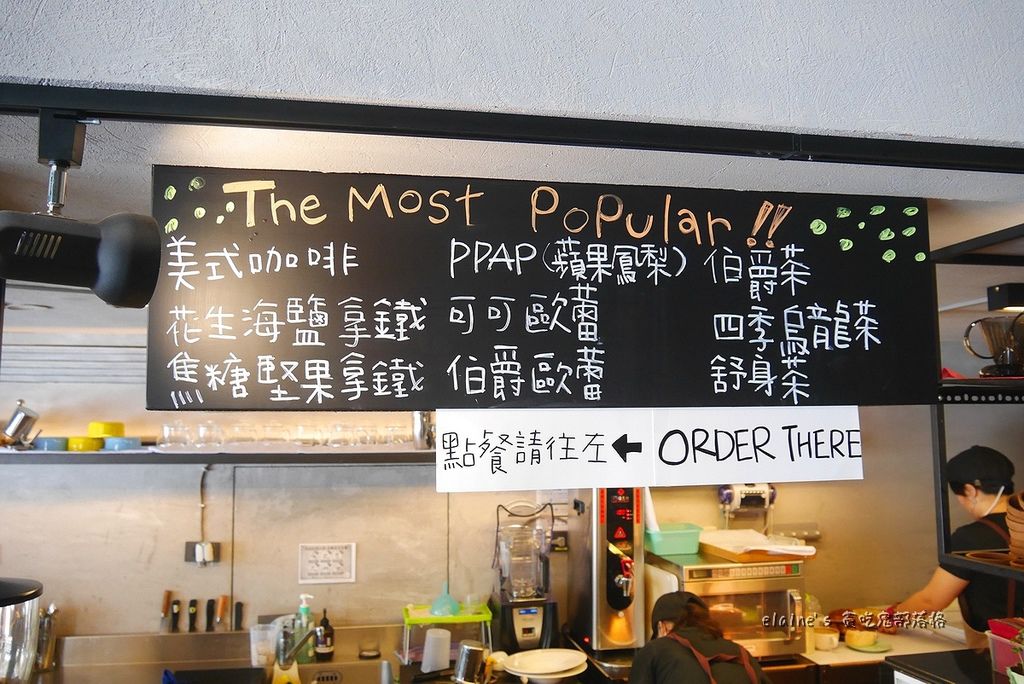 The Most Popular!!
美式咖啡
花生海鹽拿鐵
焦糖堅果拿鐵
PPAP(蘋果鳳梨)
可可歐蕾
伯爵歐蕾
伯爵茶
四季烏龍茶
舒身茶
點餐請往左← ORDER THERE
elaine's 貪吃鬼部落格